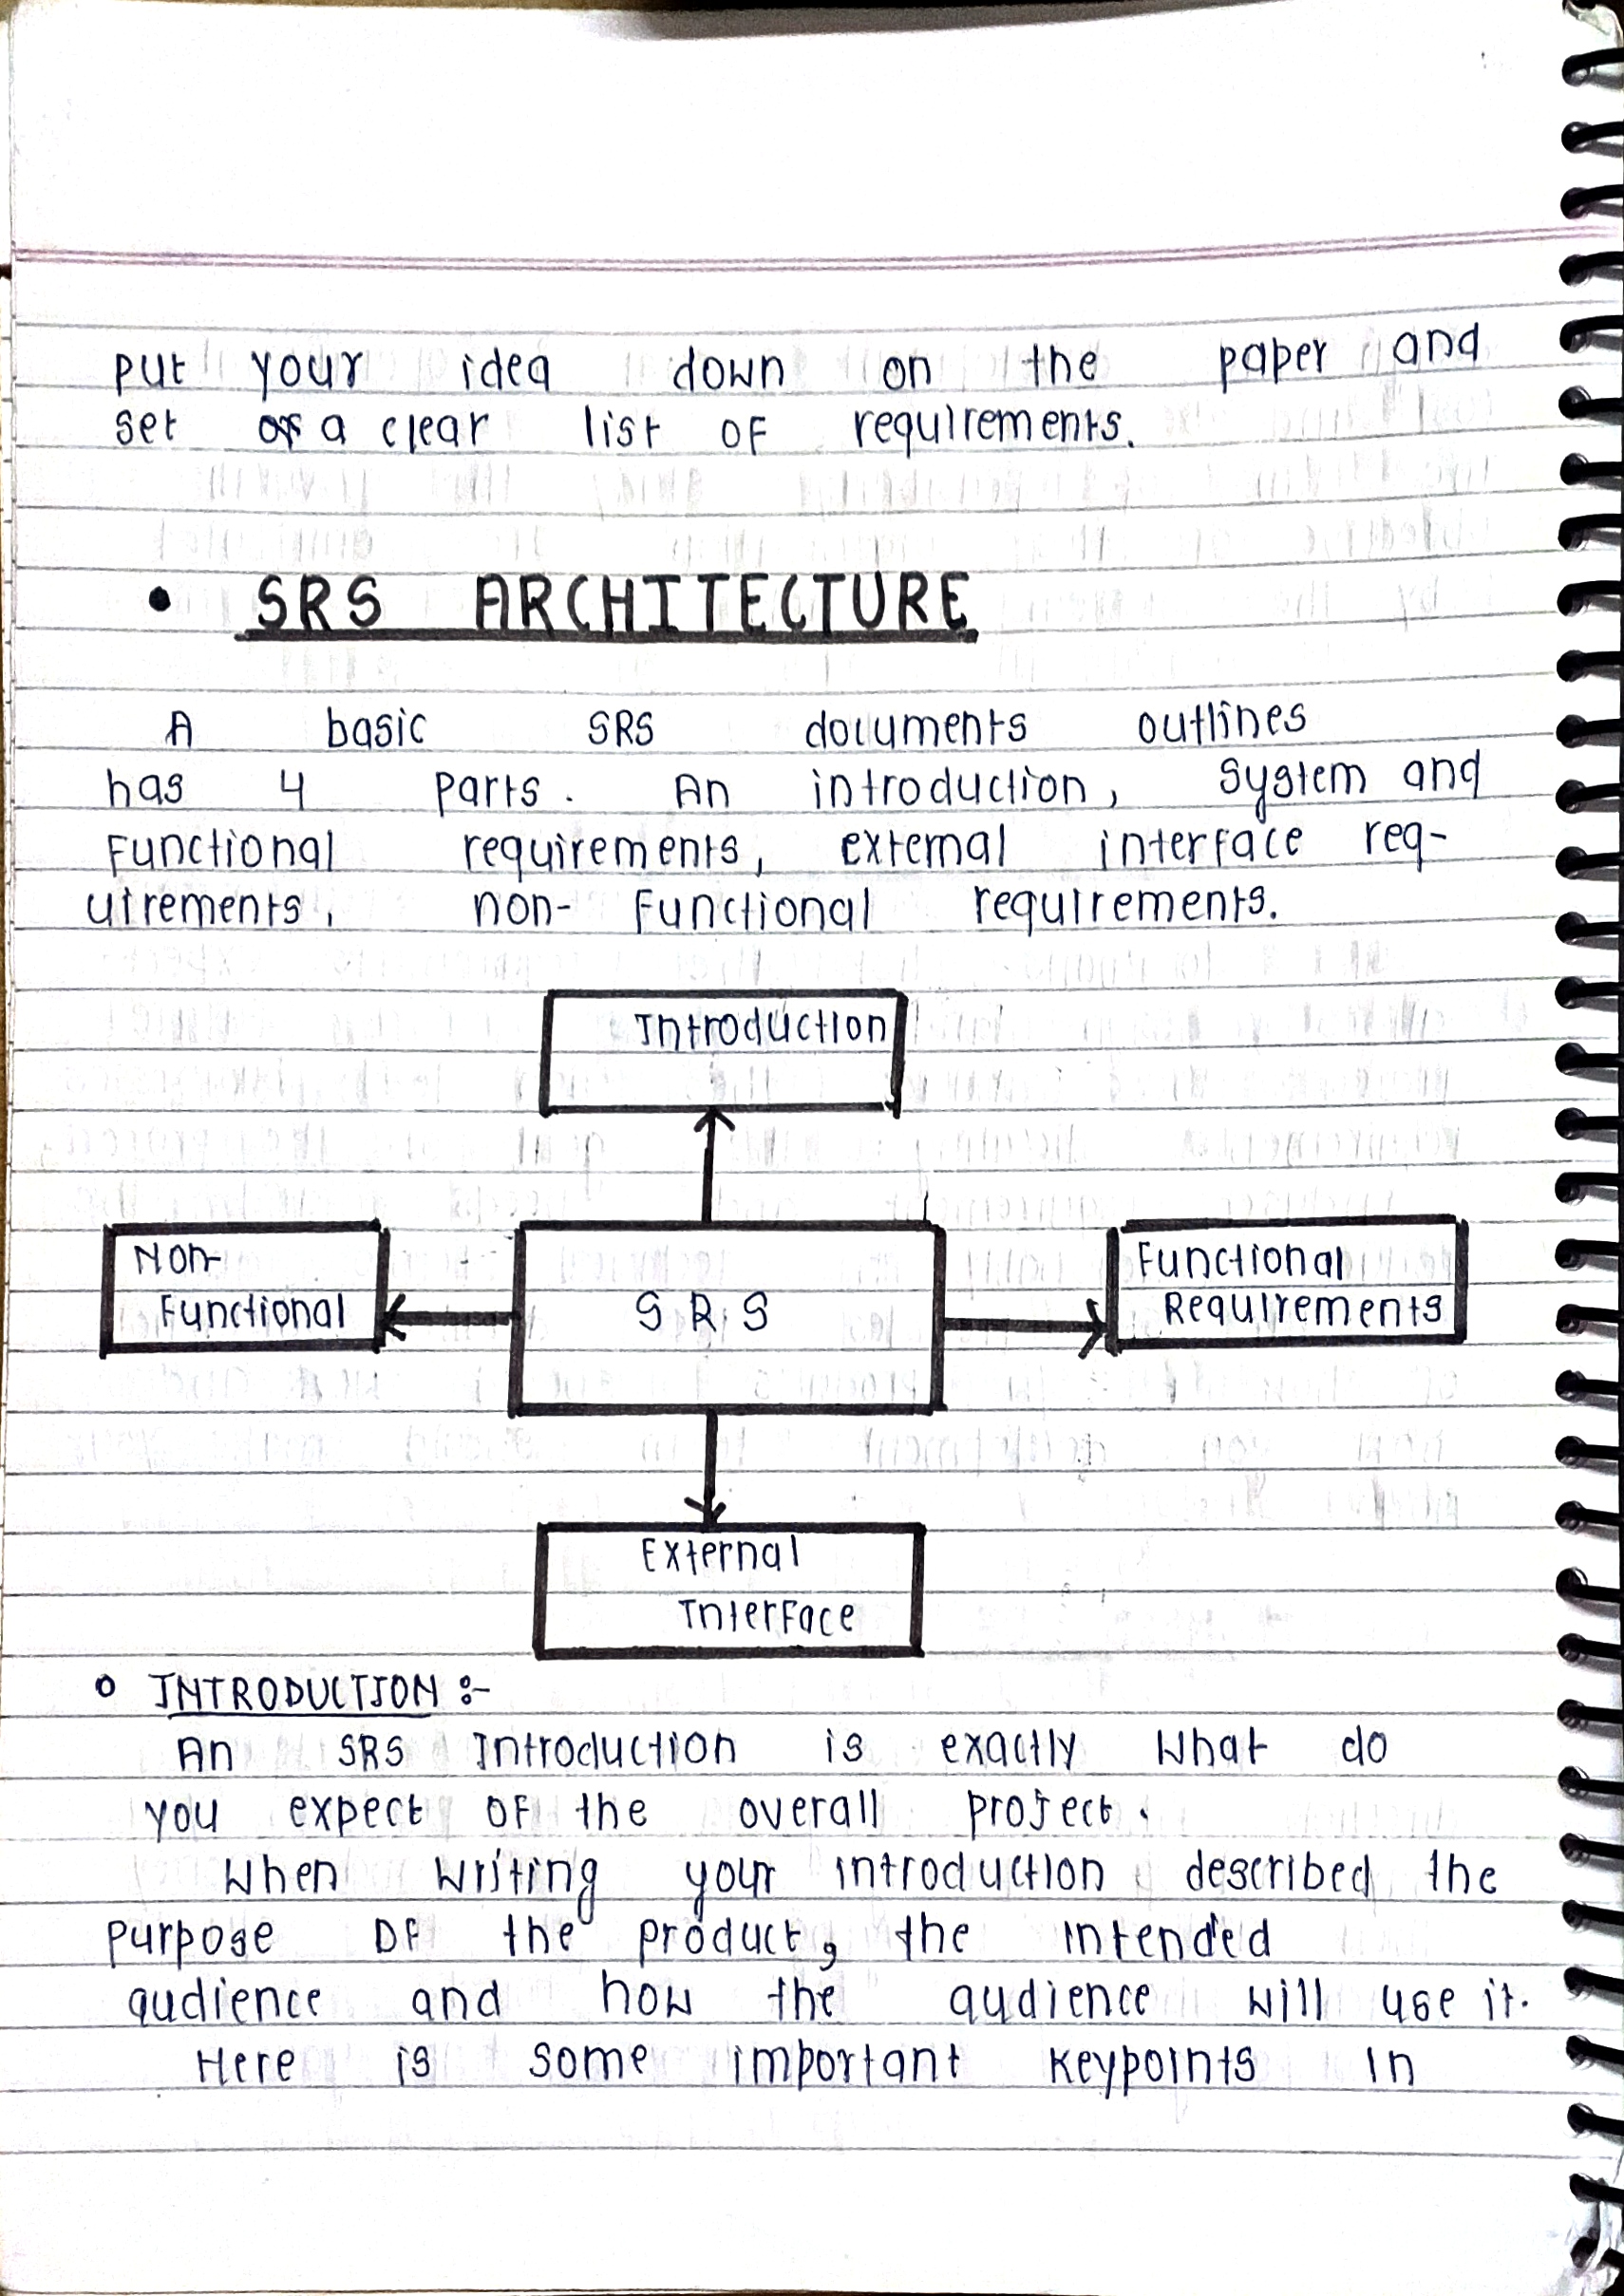 put your idea down on the paper and
set a clear list of requirements.
• SRS ARCHITECTURE
A basic SRS documents outlines
has 4 parts. An introduction, system and
functional requirements, external interface req-
uirements, non-functional requirements.
Introduction
Non-
Functional
SRS
Functional
Requirements
External
Interface
o INTRODUCTION :-
An SRS Introduction is exactly what do
you expect of the overall project.
When writing your introduction described the
purpose of the product, the intended
audience and how the audience will use it.
Here is some important keypoints in